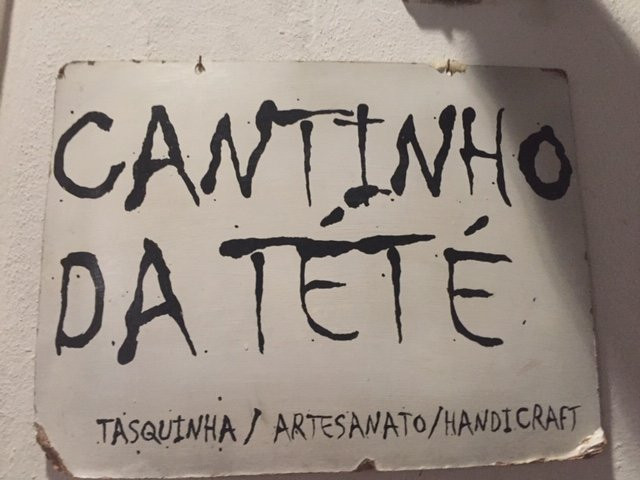 CANTINHO
DA TÉTÉ
TASQUINHA / ARTESANATO/HANDICRAFT